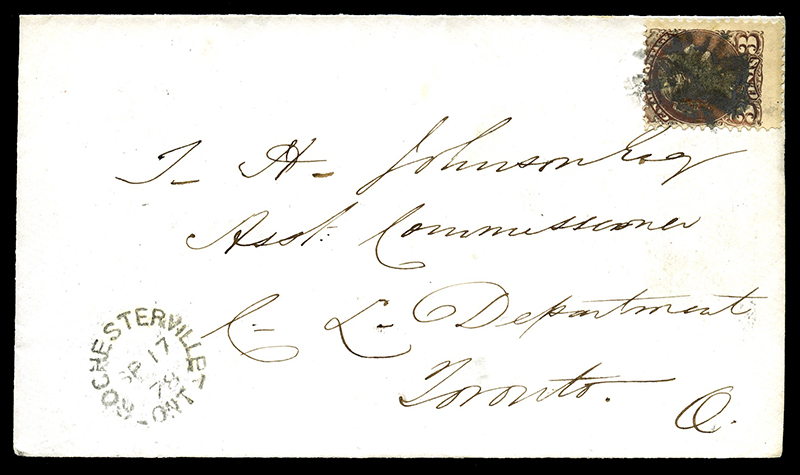 3 CENTS 3
T- H- Johnson Esq
Asst. Commissioner
C- L- Department
Toronto. O.
ROCHESTERVILLE - ONT
SP 17
78